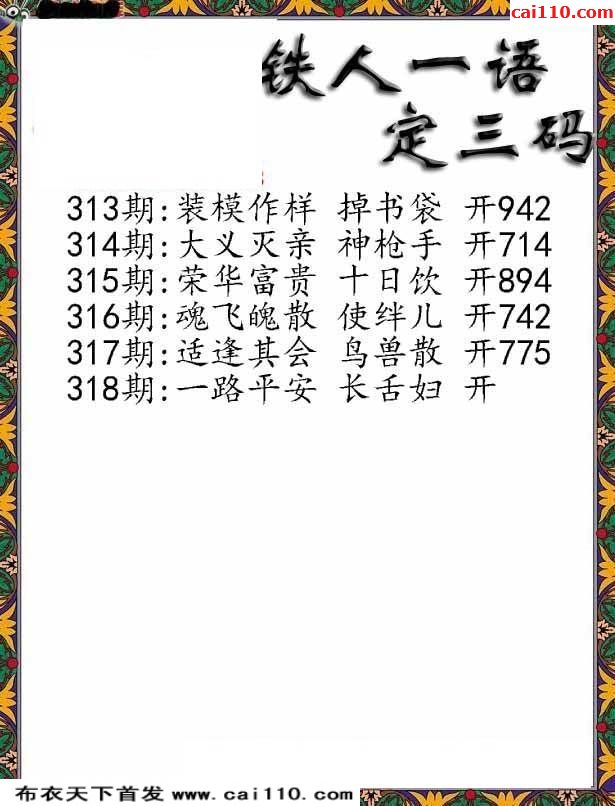 cai110.com
铁人一语
定三码
313期:装模作样 掉书袋 开942
314期:大义灭亲 神枪手 开714
315期:荣华富贵 十日饮 开894
316期:魂飞魄散 使绊儿 开742
317期:适逢其会 鸟兽散 开775
318期:一路平安 长舌妇 开
布衣天下首发 www.cai110.com